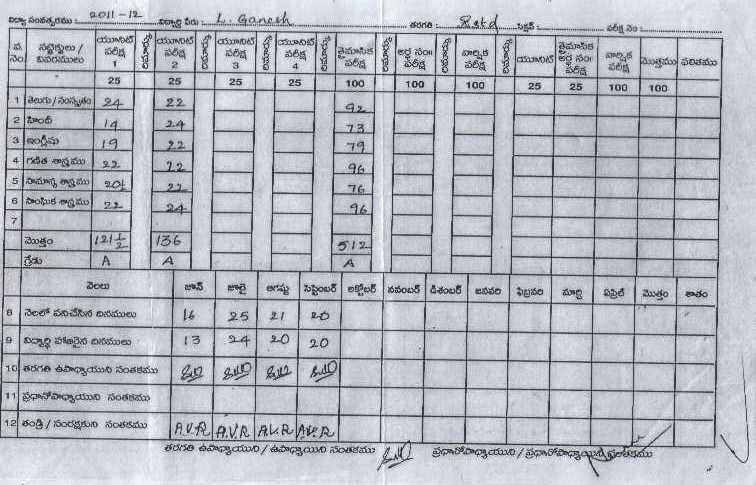 విద్యా సంవత్సరము : 2011-12 విద్యార్థి పేరు : L. Ganesh తరగతి : సెక్షన్ : పరీక్ష నెం :
వ. నెం. సబ్జెక్టులు / వివరములు యూనిట్ పరీక్ష 1 యూనిట్ పరీక్ష 2 యూనిట్ పరీక్ష 3 యూనిట్ పరీక్ష 4 త్రైమాసిక పరీక్ష అర్ధ సం॥ పరీక్ష వార్షిక పరీక్ష యూనిట్ త్రైమాసిక అర్ధ సం॥ పరీక్ష వార్షిక పరీక్ష మొత్తము ఫలితము
25 25 25 25 100 100 100 25 25 100 100
1 తెలుగు / సంస్కృతం 24 22 92
2 హిందీ 14 24 73
3 ఇంగ్లీషు 19 22 79
4 గణిత శాస్త్రము 22 22 96
5 సామాన్య శాస్త్రము 20½ 22 76
6 సాంఘిక శాస్త్రము 22 24 96
7
మొత్తం 121½ 136 512
గ్రేడు A A A
నెలలు జూన్ జూలై ఆగస్టు సెప్టెంబర్ అక్టోబర్ నవంబర్ డిశంబర్ జనవరి ఫిబ్రవరి మార్చి ఏప్రిల్ మొత్తం శాతం
8 నెలలో పనిచేసిన దినములు 16 25 21 20
9 విద్యార్థి హాజరైన దినములు 13 24 20 20
10 తరగతి ఉపాధ్యాయుని సంతకము
11 ప్రధానోపాధ్యాయుని సంతకము
12 తండ్రి / సంరక్షకుని సంతకము A.V.R A.V.R A.V.R A.V.R
తరగతి ఉపాధ్యాయుని / ఉపాధ్యాయిని సంతకము ప్రధానోపాధ్యాయుని / ప్రధానోపాధ్యాయిని సంతకము